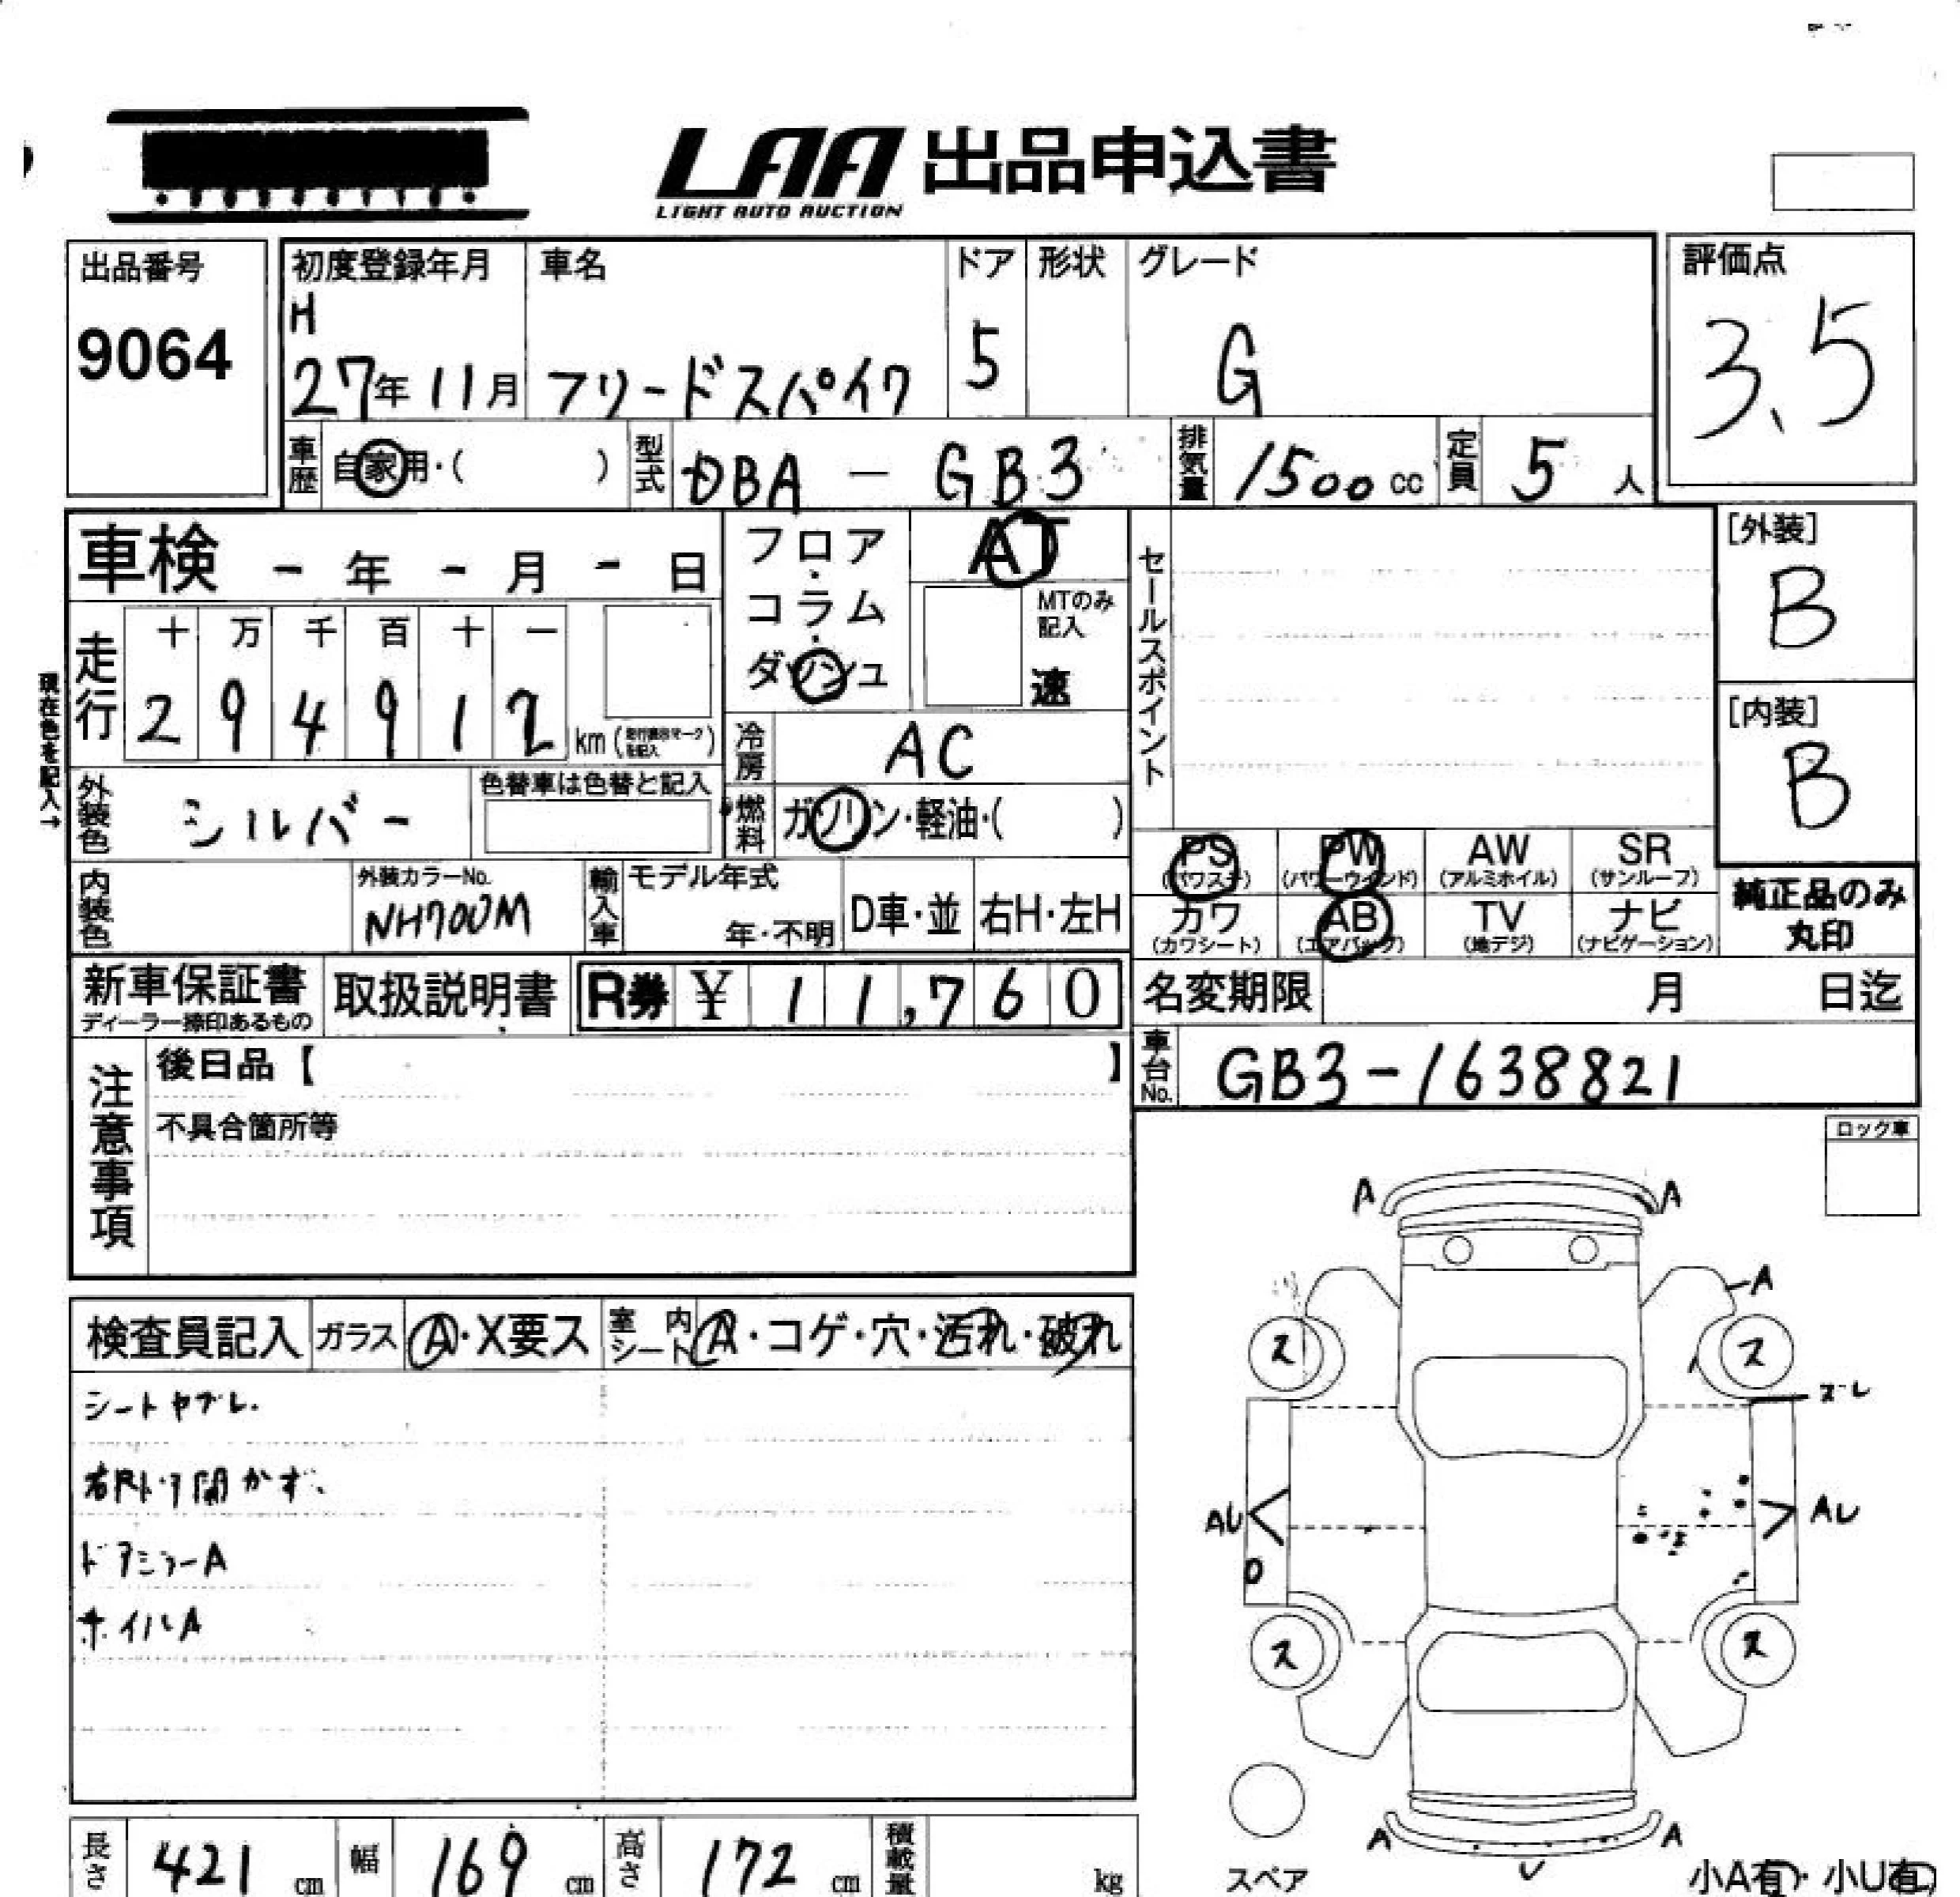 LAA 出品申込書
LIGHT AUTO AUCTION
出品番号
9064
初度登録年月
H
27年11月
車名
フリードスパイク
ドア
5
形状
グレード
G
評価点
3.5
車歴
自家用・(     )
型式
DBA - GB3
排気量
1500 cc
定員
5 人
車検 - 年 - 月 - 日
フロア・コラム・ダッシュ
AT
MTのみ記入
速
セールスポイント
[外装]
B
[内装]
B
現在色を記入→
走行
十 万 千 百 十 一
2 9 4 9 1 2 km
冷房
AC
外装色
シルバー
色替車は色替と記入
燃料
ガソリン・軽油・(     )
PS
(パワステ)
PW
(パワーウインド)
AW
(アルミホイル)
SR
(サンルーフ)
カワ
(カワシート)
AB
(エアバック)
TV
(地デジ)
ナビ
(ナビゲーション)
純正品のみ
丸印
内装色
外装カラーNo.
NH700M
輸入車
モデル年式
年・不明
D車・並
右H・左H
新車保証書
ディーラー捺印あるもの
取扱説明書
R券 ¥ 11,760
名変期限 月 日迄
車台No.
GB3-1638821
注意事項
後日品【     】
不具合箇所等
ロック車
検査員記入
ガラス
A・X要ス
室内シート
A・コゲ・穴・汚れ・破れ
シートヤブレ.
右Rドア開かず.
ドアミラーA
ホイルA
A A
A
ス ス
ズレ
AU AU
ス ス
A A
スペア
小A有・小U有
長さ 421 cm
幅 169 cm
高さ 172 cm
積載量 kg